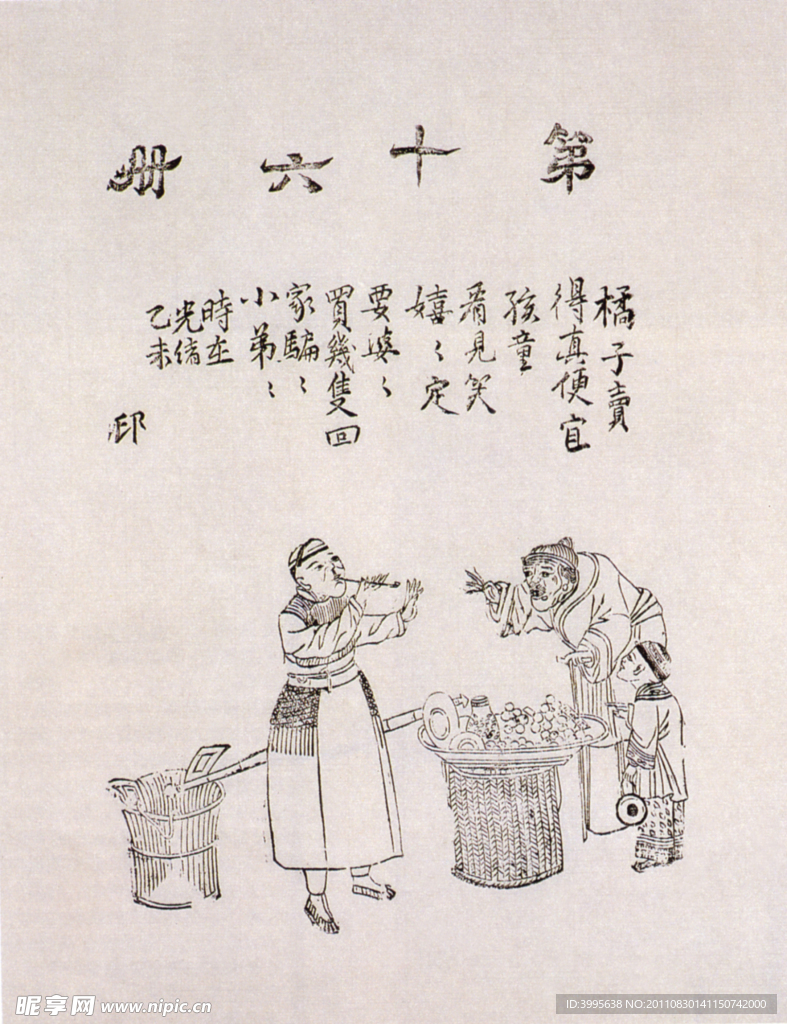 第十六册
橘子賣
得真便宜
孩童
看見笑
嬉〻定
要婆〻
買幾隻回
家騙〻
小弟〻
時在
光緒
乙未
邸
昵享网 www.nipic.cn
ID:3995638 NO:20110830141150742000